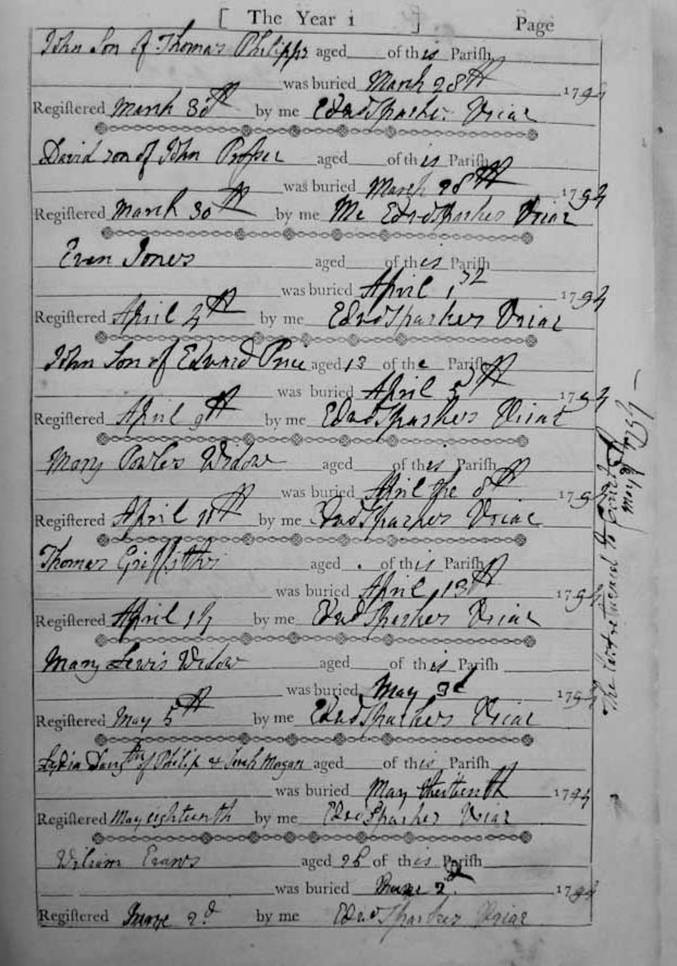 [ The Year 1 ] Page
John Son of Thomas Philipps aged of this Parish
was buried March 28th 1794
Registered March 30th by me Edwd Sparkes Vicar
David son of John Prosser aged of this Parish
was buried March 28th 1794
Registered March 30th by me Me Edwd Sparkes Vicar
Evan Jones aged of this Parish
was buried April 1794
Registered April by me Edwd Sparkes Vicar
John Son of Edward Price aged 13 of the Parish
was buried April 1794
Registered April 9th by me Edwd Sparkes Vicar
Mary Powles Widow aged of this Parish
was buried April the 8th 1794
Registered April by me Edwd Sparkes Vicar
Thomas Griffiths aged of this Parish
was buried April 13th 1794
Registered April by me Edwd Sparkes Vicar
Mary Lewis Widow aged of this Parish
was buried May 3d 1794
Registered May 5th by me Edwd Sparkes Vicar
Lydia Daugtr of Philip & Sarah aged of this Parish
was buried May 1794
Registered May eighteenth by me Edwd Sparkes Vicar
Wiliam Evans aged 26 of this Parish
was buried 2d 1794
Registered June 2d by me Edwd Sparkes Vicar
The to